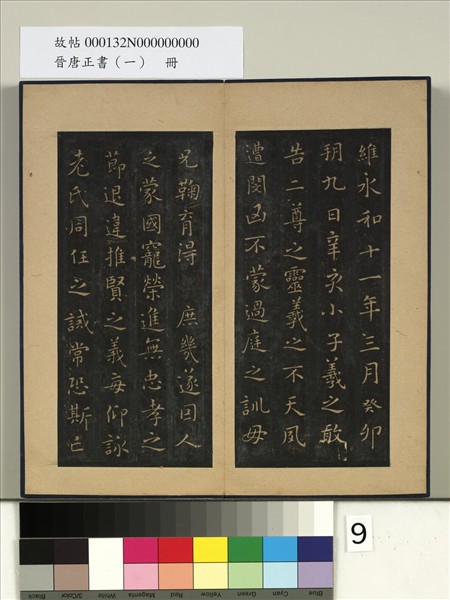 故帖 000132N000000000
晉唐正書（一） 冊
維永和十一年三月癸卯
朔九日辛亥小子羲之敢
告二尊之靈羲之不天夙
遭閔凶不蒙過庭之訓母
兄鞠育得 庶幾遂因人
之蒙國寵榮進無忠孝之
節退違推賢之義每仰詠
老氏周任之誡常恐斯亡
9
Black
3/Color
White
Magenta
Red
Yellow
Green
Cyan
Blue